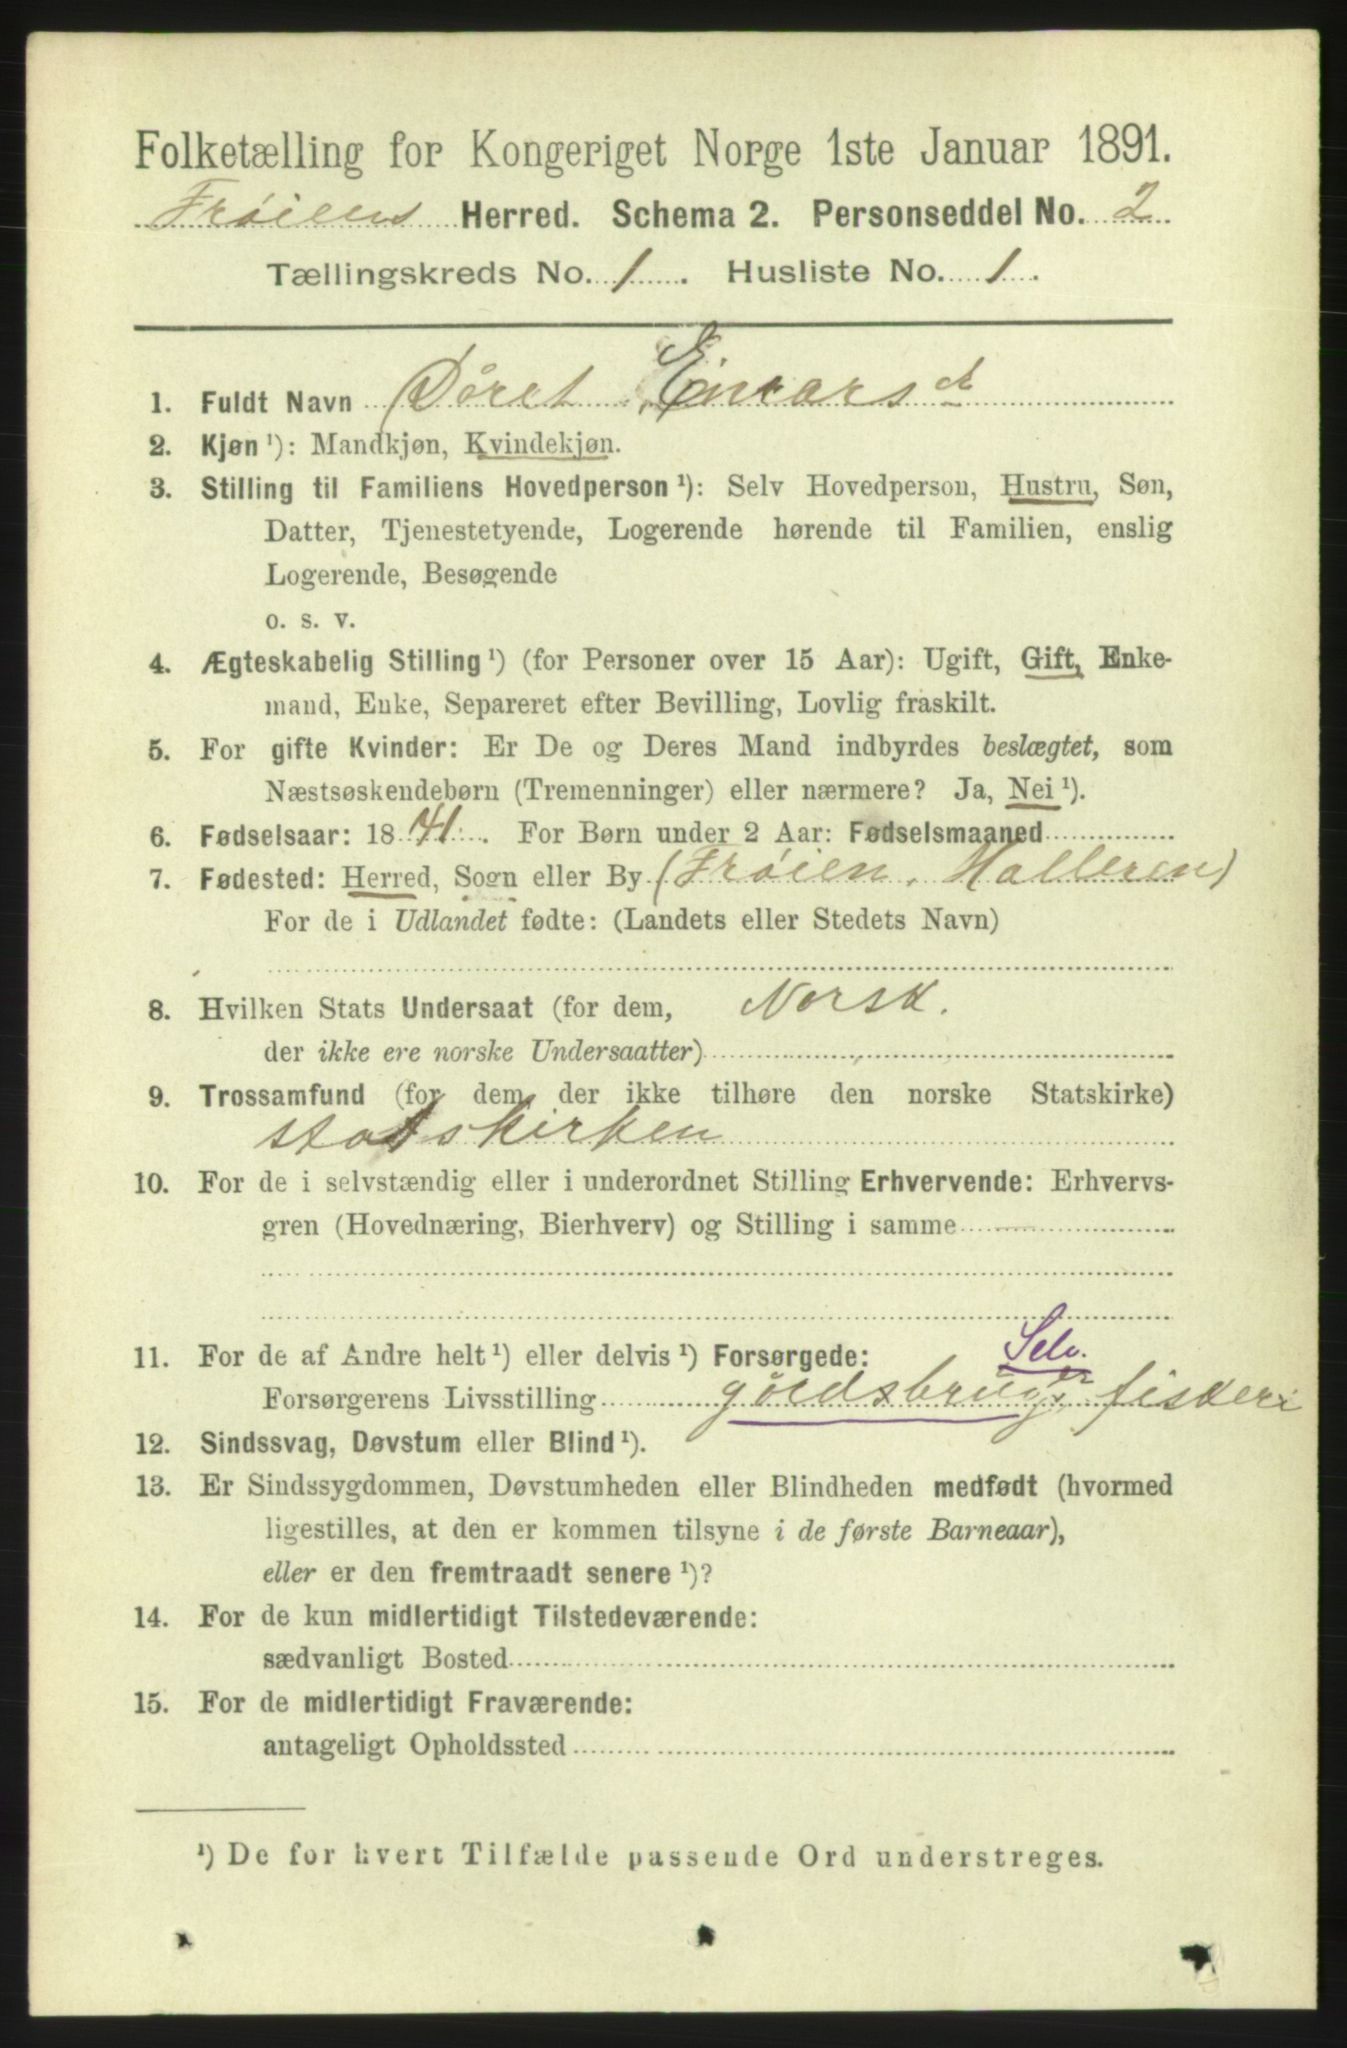 Folketælling for Kongeriget Norge 1ste Januar 1891.
Frøiens Herred. Schema 2. Personseddel No. 2
Tællingskreds No. 1. Husliste No. 1.
1. Fuldt Navn Døret Einarsd
2. Kjøn ¹): Mandkjøn, Kvindekjøn.
3. Stilling til Familiens Hovedperson ¹): Selv Hovedperson, Hustru, Søn,
Datter, Tjenestetyende, Logerende hørende til Familien, enslig
Logerende, Besøgende
o. s. v.
4. Ægteskabelig Stilling ¹) (for Personer over 15 Aar): Ugift, Gift, Enke-
mand, Enke, Separeret efter Bevilling, Lovlig fraskilt.
5. For gifte Kvinder: Er De og Deres Mand indbyrdes beslægtet, som
Næstsøskendebørn (Tremenninger) eller nærmere? Ja, Nei ¹).
6. Fødselsaar: 1841. For Børn under 2 Aar: Fødselsmaaned
7. Fødested: Herred, Sogn eller By (Frøien, Halleren)
For de i Udlandet fødte: (Landets eller Stedets Navn)
8. Hvilken Stats Undersaat (for dem, Norsk.
der ikke ere norske Undersaatter)
9. Trossamfund (for dem der ikke tilhøre den norske Statskirke)
statskirken
10. For de i selvstændig eller i underordnet Stilling Erhvervende: Erhvervs-
gren (Hovednæring, Bierhverv) og Stilling i samme
Selv.
11. For de af Andre helt ¹) eller delvis ¹) Forsørgede:
Forsørgerens Livsstilling gøédsbruger fiskeri
12. Sindssvag, Døvstum eller Blind ¹).
13. Er Sindssygdommen, Døvstumheden eller Blindheden medfødt (hvormed
ligestilles, at den er kommen tilsyne i de første Barneaar),
eller er den fremtraadt senere ¹)?
14. For de kun midlertidigt Tilstedeværende:
sædvanligt Bosted
15. For de midlertidigt Fraværende:
antageligt Opholdssted
¹) De for hvert Tilfælde passende Ord understreges.